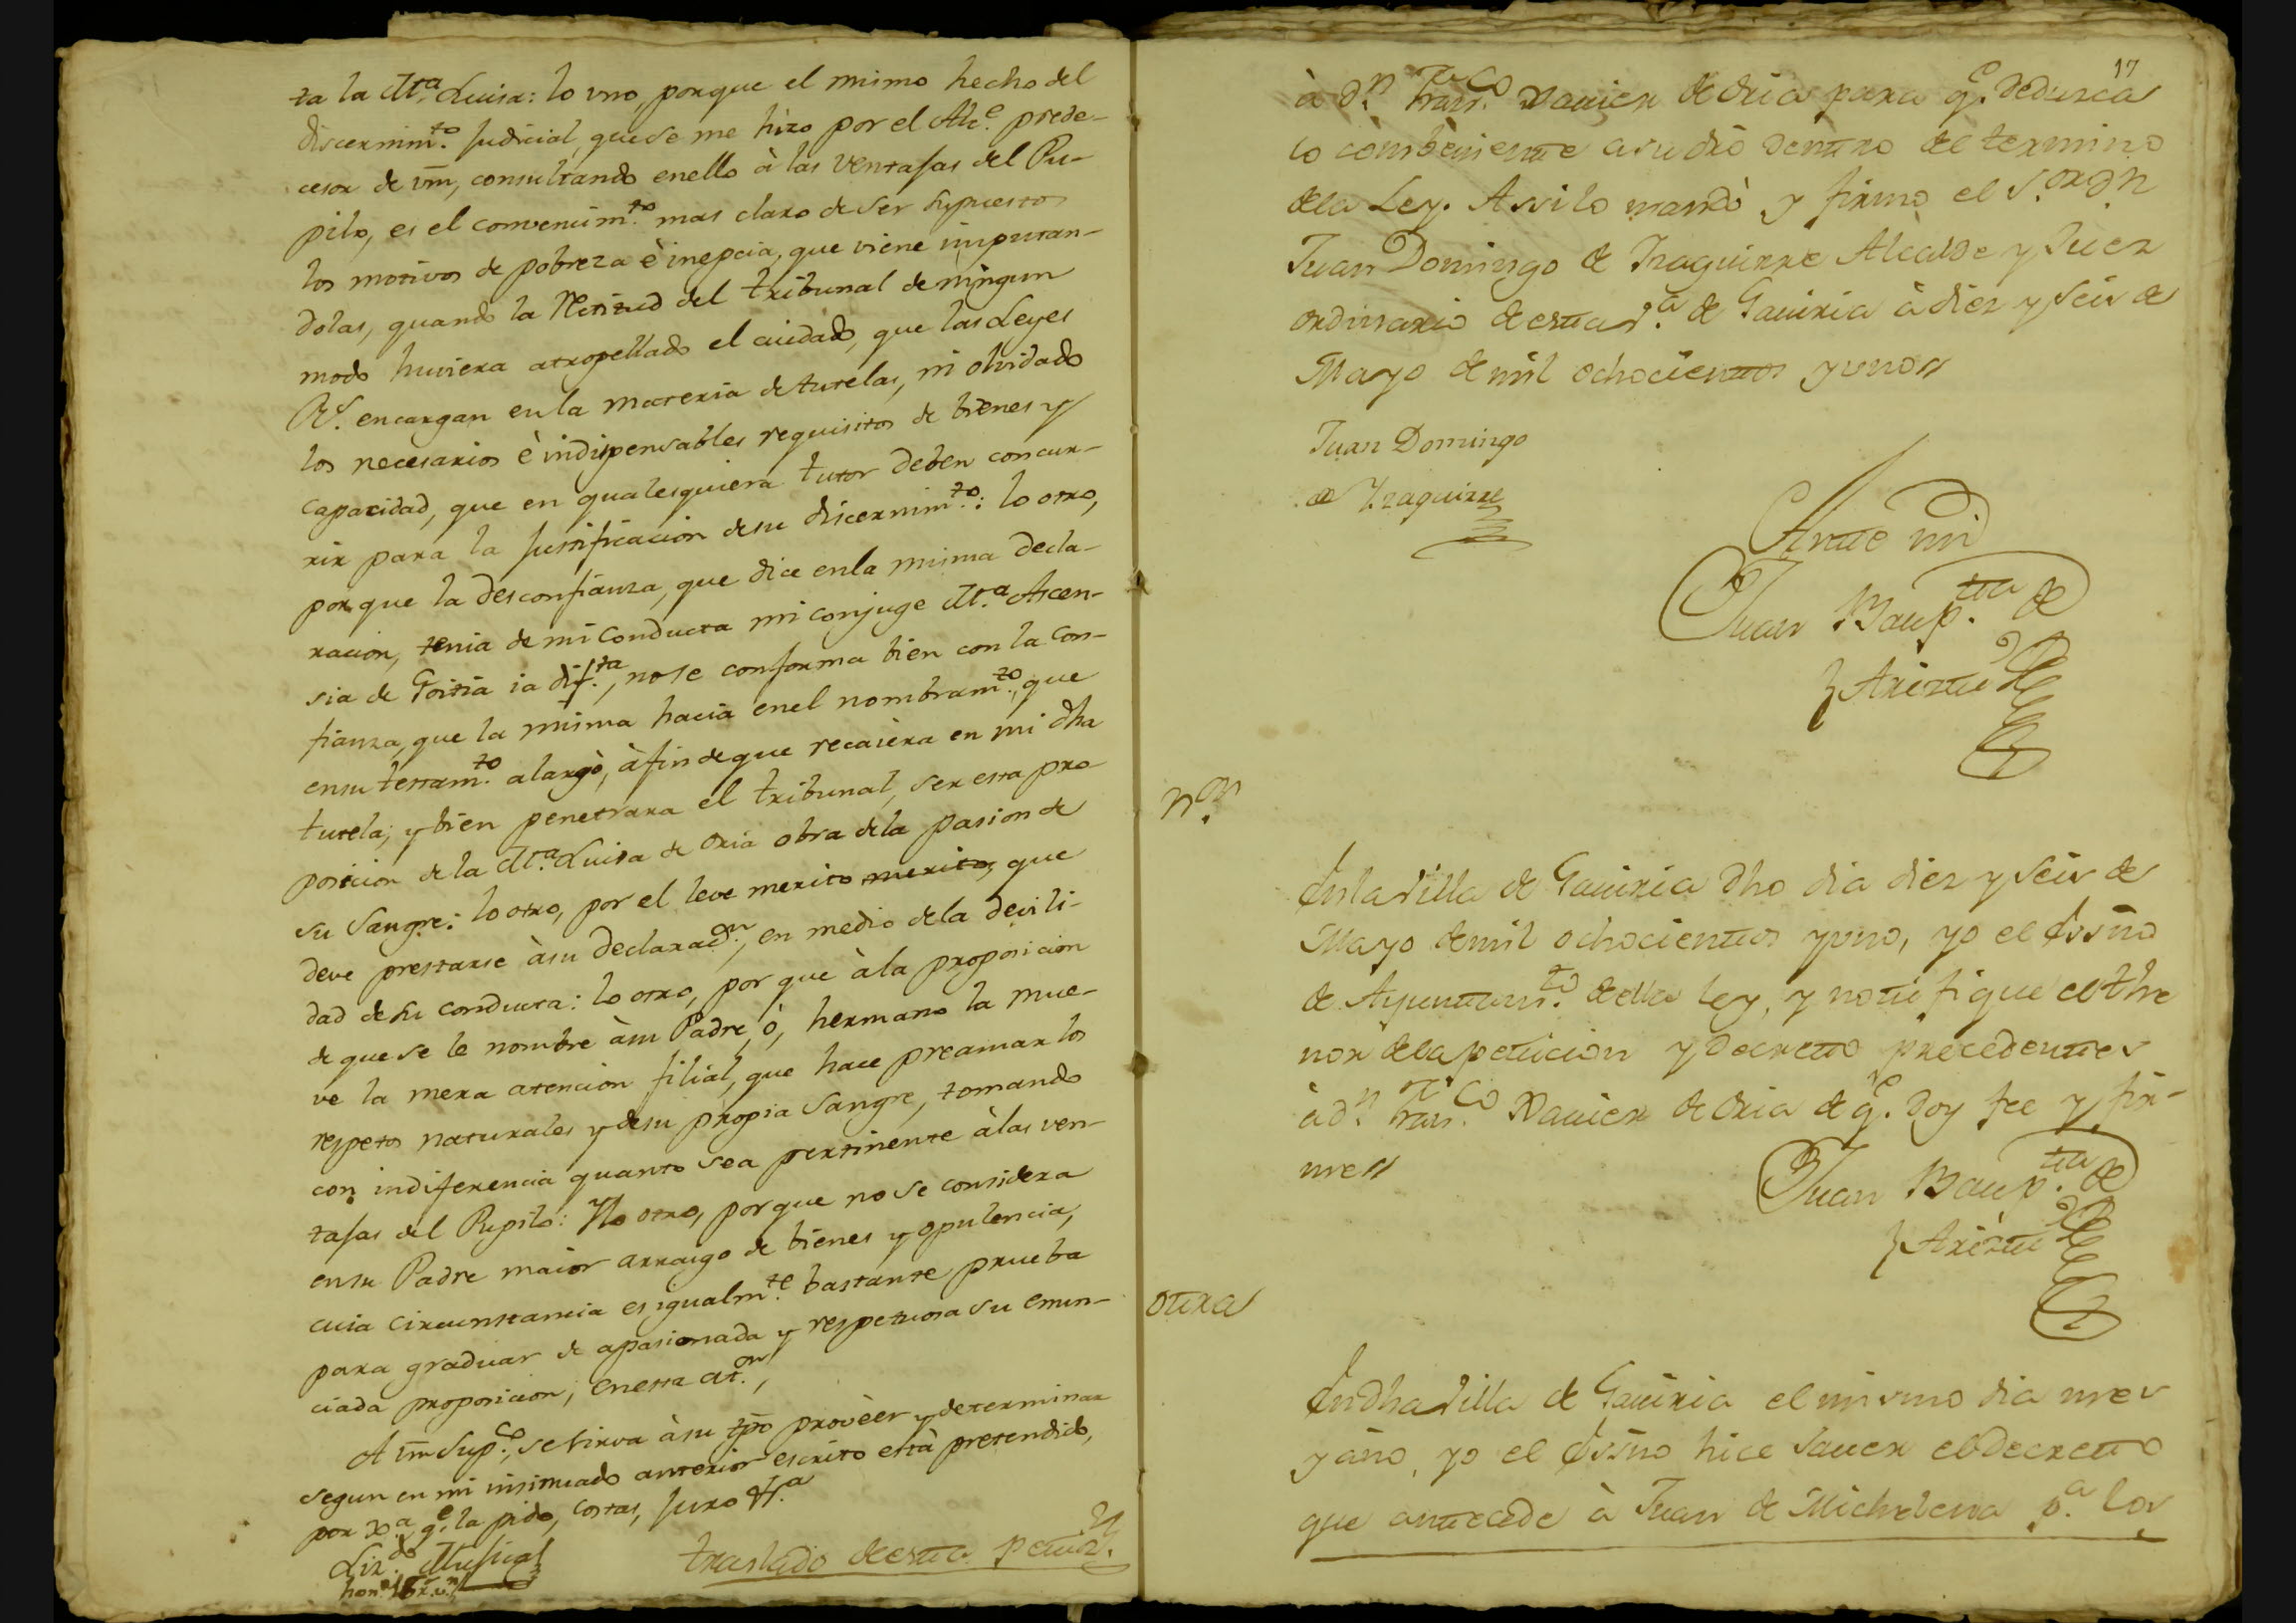 ta la M.ª Luisa: lo vno, porque el mismo hecho del
discernim.to Judicial, que se me hizo por el Alc.e prede-
cesor de vm, consultando en ello à las ventajas del Pu-
pilo, es el convencim.to mas claro de ser supuestos
los motivos de pobreza è inepcia, que viene imputan-
dolas, quando la Retitud del tribunal de ningun
modo huviera atropellado el cuidado, que las Leyes
R.s encargan en la materia de tutelas, ni olvidado
los necesarios è indispensables requisitos de bienes y
capacidad, que en qualesquiera tutor deben concur-
rir para la justificacion de su discernim.to: lo otro,
por que la desconfianza, que dice en la misma decla-
racion, tenia de mi conducta mi conjuge M.ª Ascen-
sia de Goitia ia dif.ta, no se conforma bien con la con-
fianza, que la misma hacia en el nombram.to, que
en su testam.to alargò, à fin de que recaiera en mi dha
tutela; y bien penetrara el tribunal, ser esta pro
posicion de la M.ª Luisa de Oria obra de la pasion de
su Sangre: lo otro, por el leve merito merito, que
deve prestarse à su declarac.on, en medio de la devili-
dad de su conducta: lo otro, por que à la proposicion
de que se le nombre à su Padre, ò, hermano la mue-
ve la mera atencion filial, que hace preamar los
respetos naturales y de su propia Sangre, tomando
con indiferencia quanto sea pertinente à las ven-
tajas del Pupilo: Y lo otro, por que no se considera
en su Padre maior arraigo de bienes y opulencia,
cuia circunstancia es igualm.te bastante prueba
para graduar de apasionada y respetuosa su enun-
ciada proposicion; en esta at.on,
A vm Sup.co, se sirva à su tpo provèer y determinar
segun en mi insinuado anterior escrito està pretendido,
por x.ª q.e la pido, costas, juro &.ª
Liz.do Mujica
hon.s 16 r.s v.n
traslado de esta petiz.n
17
à d.n Fran.co Xavier de Oria para q.e deduzca
lo combeniente a su dro dentro del termino
de la Ley. Assi lo mandò y firmo el S.or d.n
Juan Domingo de Yzaguirre Alcalde y Juez
ordinario de esta v.ª de Gaviria à diez y seis de
Mayo de mil ochocientos y uno//
Juan Domingo
de Yzaguirre
Ante mi
Juan Baup.ta de
Ariztu
n.on
En la villa de Gaviria dho dia diez y seis de
Mayo de mil ochocientos y uno, yo el Essno
de Ayuntam.to de ella ley, y notifique el the
nor de la peticion y decreto precedentes
à d.n Fran.co Xavier de Oria de q.e doy fee y fir-
me//
Juan Baup.ta de
Ariztu
otra
En dha villa de Gaviria el mismo dia mes
y año, yo el Essno hice saver el decreto
que antecede à Juan de Michelena p.ª los